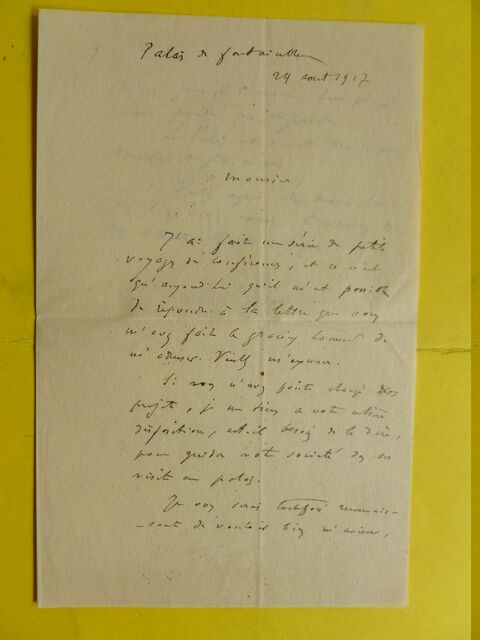 Palais de Fontainebleau
24 aout 1917
Monsieur,
J'ai fait une série de petits
voyages de conférences, et ce n'est
qu'aujourd'hui qu'il m'est possible
de répondre à la lettre que vous
m'avez fait le gracieux honneur de
m'adresser. Veuillez m'excuser.
Si vous n'avez point changé vos
projets, je me tiens à votre entière
disposition, est-il besoin de le dire,
pour guider votre société dans sa
visite au palais.
Je vous serai reconnais-
sant de vouloir bien m'aviser,